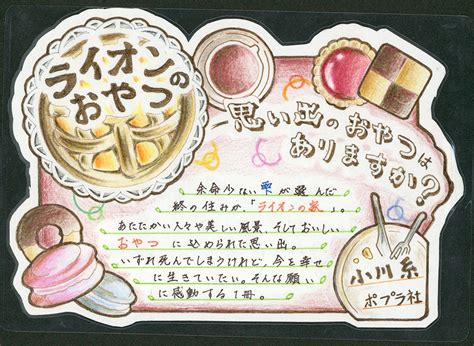 ライオンの
おやつ
思い出のおやつは
ありますか?
余命少ない雫が選んだ
終の住みか、「ライオンの家」。
あたたかい人々や美しい風景、そしておいしい
おやつ に込められた思い出。
いずれ死んでしまうけれど、今を幸せ
に生きていたい。そんな願い
に感動する1冊。
小川糸
ポプラ社